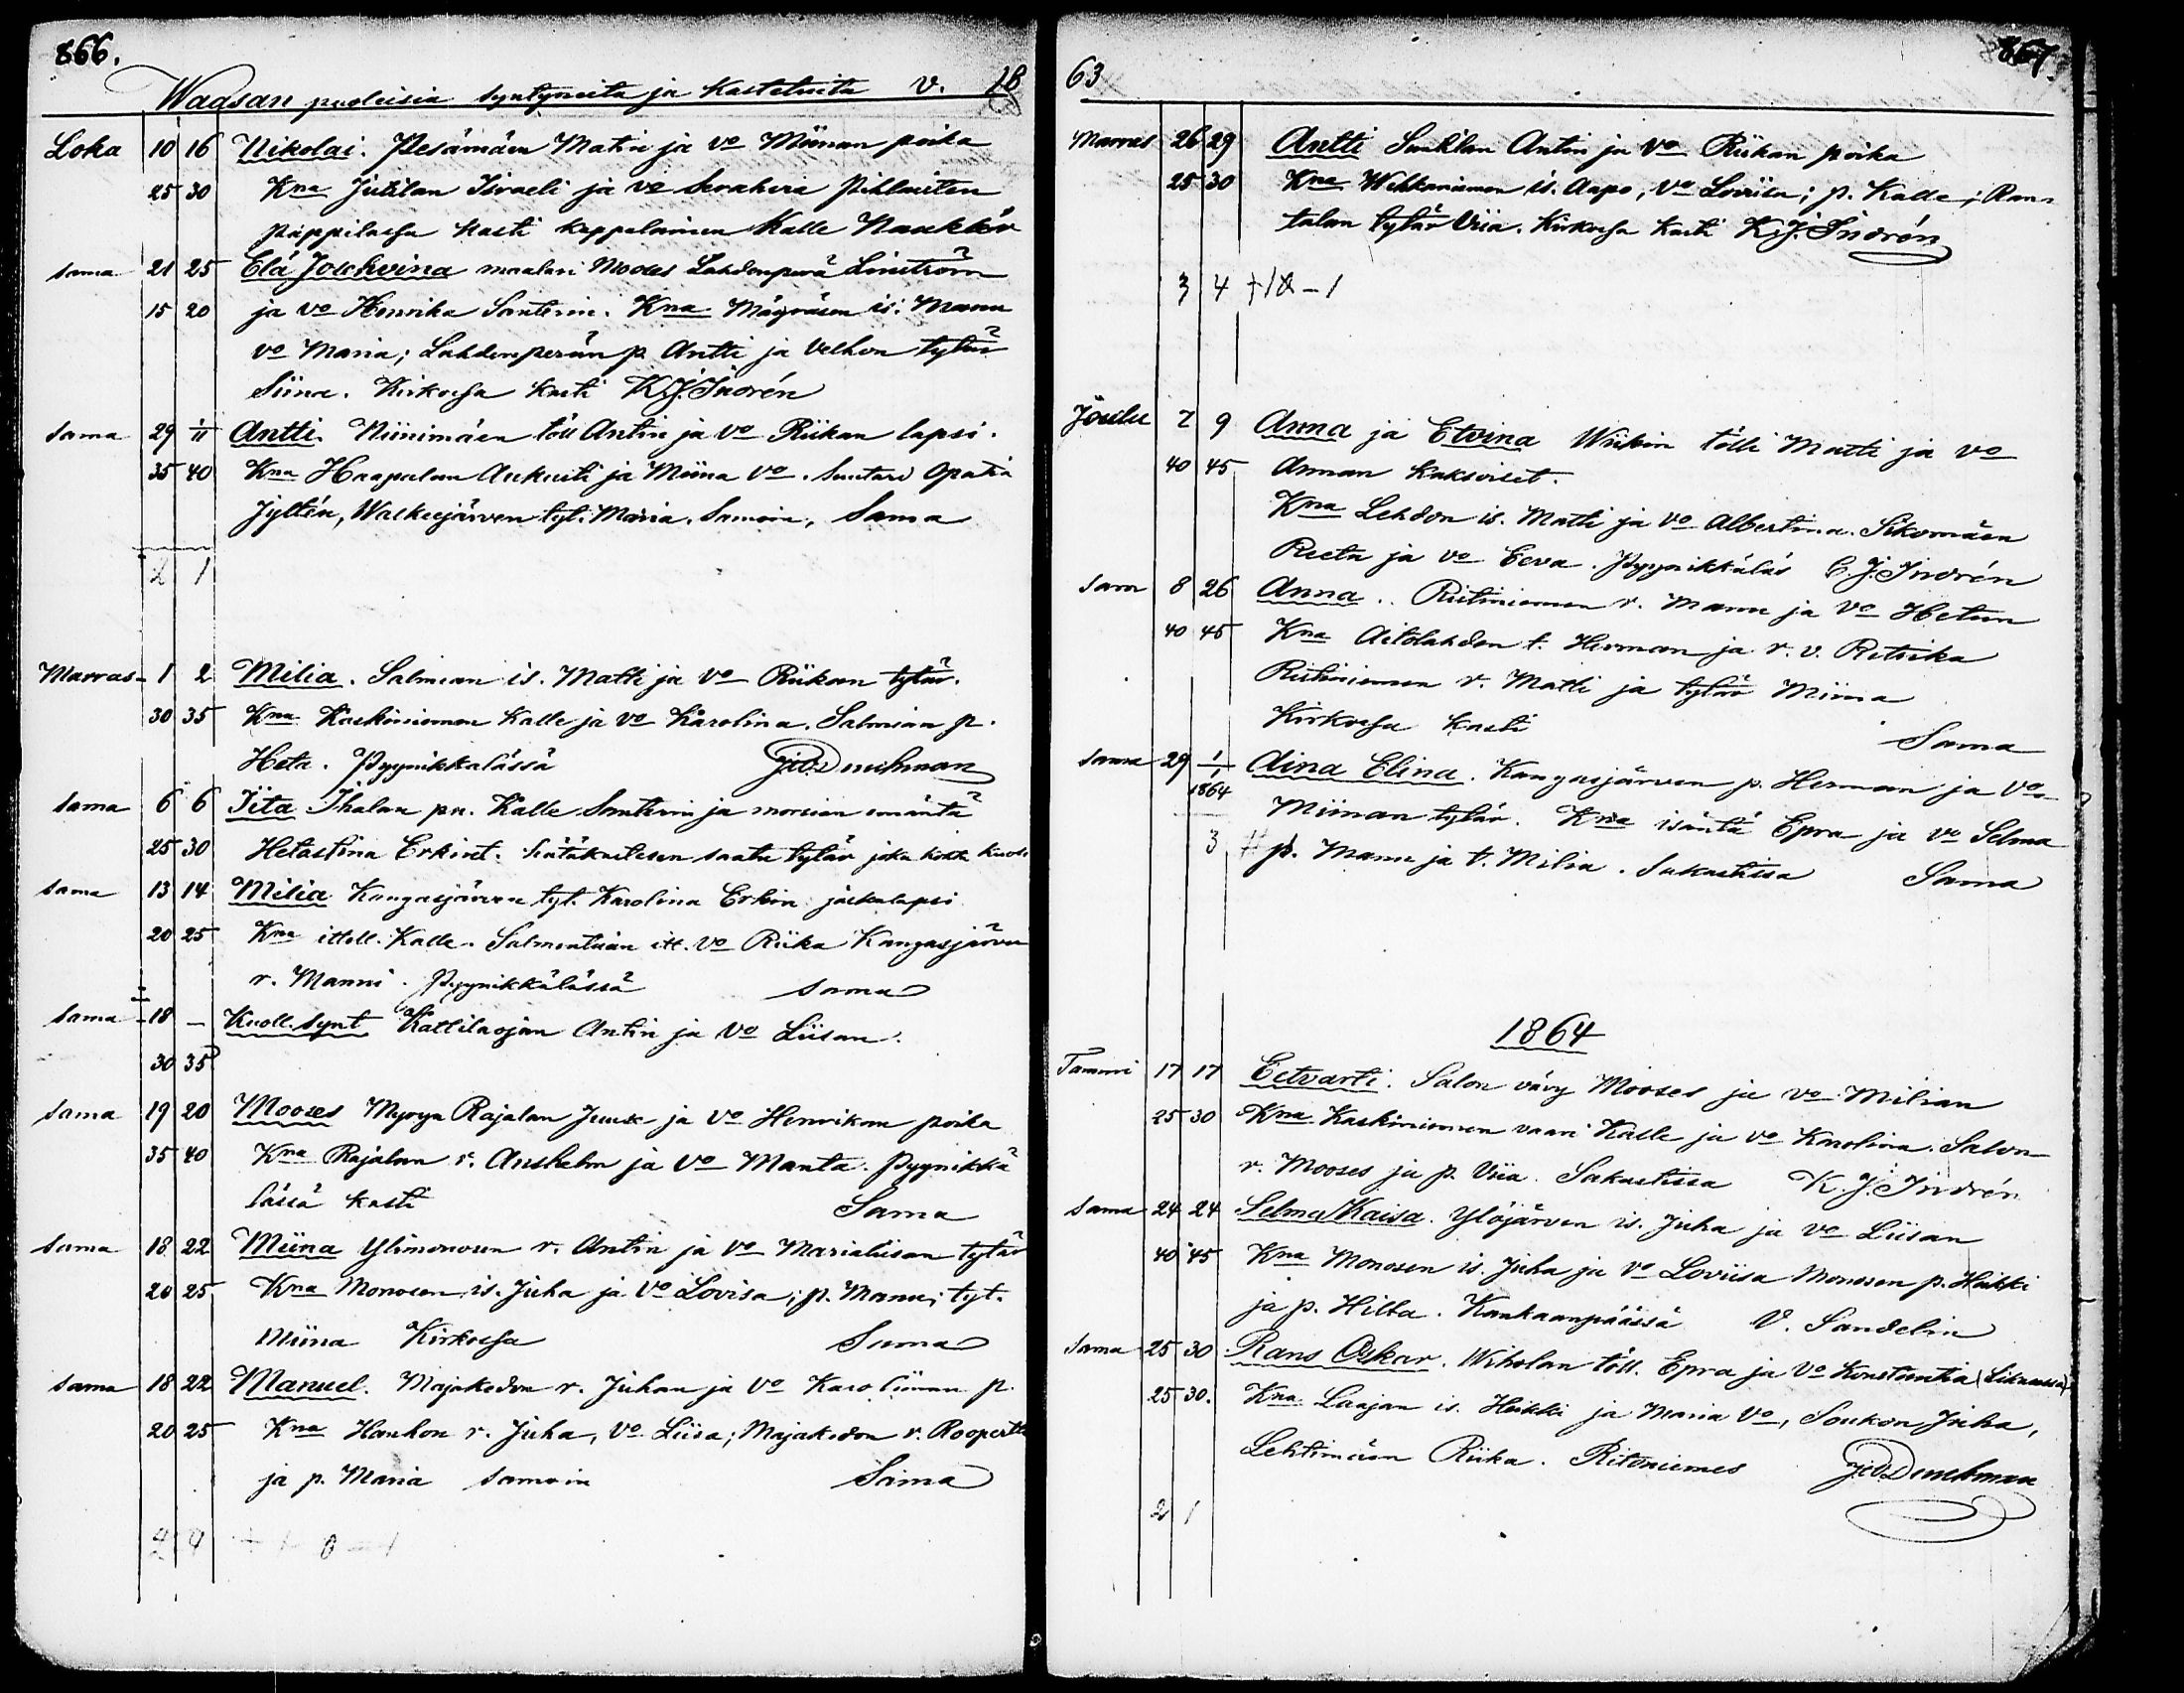 866.
Waasan puolisia syntyneitä ja kastetuita v. 18
Loka 10 16 Nikolai. Pesämäen Matin ja vo Miinan poika
25 30 Kna Jutilan Israeli ja vo Serahvia Pihlmiten
pappilassa kasti kappalainen Kalle
sama 21 25 Elä Joschvina maalari Mooses Lahdenperä Linström
15 20 ja vo Henrika Santerin. Kna Mäyräsen is. Manu
vo Maria; Lahdenperän p. Antti ja Velhon tytär
Siina. Kirkossa kasti K.J. Indrén
sama 29 1/11 Antti. Niinimäen töll Antin ja vo Riikan lapsi.
35 40 Kna Haapalan Aukusti ja Miina vo. Suutari
Jyltén, Walkeejärven tyt. Maria. Samoin, Sama
2 1
Marras 1 2 Milia. Salmian is. Matti ja vo Riikan tytär.
30 35 Kna Kaskiniemen Kalle ja vo Karolina. Salmian p.
Heta. Pyynikkälässä
sama 6 6 Iita Ihalan pn. Kalle Santerin ja morsian emäntä
25 30 Hetastina Erkint. hätäkasteen saatu tytär joka kohta kuoli
sama 13 14 Milia Kangasjärven tyt. Karolina Erkin jäskalapsi
20 25 Kna ittell. Kalle. Salmentaän itt. vo Riika Kangasjärven
r. Manni. Pyynikkälässä sama
sama 18 – Kuoll. synt. Kattilaojan Antin ja vo Liisan.
30 35
sama 19 20 Mooses Myvyn Rajalan Juuse ja vo Henrikan poika
35 40 Kna Rajalan r. Anshelm ja vo Manta. Pyynikkä
lässä kasti Sama
sama 18 22 Miina Ylimonosen r. Antin ja vo Marialiisan tytär
20 25 Kna Monosen is. Juha ja vo Lovisa; p. Manu; tyt.
Miina Kirkossa Sama
sama 18 22 Manuel. Majakedon r. Juhan ja vo Karoliinan p.
20 25 Kna Hanhon r. Juha, vo Liisa; Majakedon r. Roopertti
ja p. Maria samoin Sama
2 4 + 1 0 – 1
63 867.
Marras 26 29 Antti Antin ja vo Riikan poika
25 30 Kna Wehkaniemen is. Aapo, vo Loviisa; p. Kalle; Ran-
talan tytär Viia. Kirkossa kasti K.J. Indrén
3 4 + 1 0 – 1
Joulu 7 9 Anna ja Etvina Wiikin tölli Matti ja vo
40 45 Annan kaksoiset.
Kna Lehdon is. Matti ja vo Albertina. Sikomäen
Reeta ja vo Eeva. Pyynikkäläs C.J. Indrén
sama 8 26 Anna. Ristiniemen r. Manu ja vo Hetan
40 45 Kna Aitolahden t. Herman ja r. v. Retrika
Ristiniemen r. Matti ja tytär Miina
Kirkossa kasti Sama
sama 29 1/1 1864 Aina Elina. Kangasjärven p. Herman ja vo
Miinan tytär. Kna isäntä Epra ja vo Selma
3 p. Manu ja t. Milia. Sakastissa Sama
1864
Tammi 17 17 Eetvarti. Salon vävy Mooses ja vo Milian
25 30 Kna Kaskiniemen vaari Kalle ja vo Karolina. Salon
r. Mooses ja p. Viia. Sakastissa K.J. Indrén
sama 24 24 Selma Kaisa. Ylöjärven is. Juha ja vo Liisan
40 45 Kna Monosen is. Juha ja vo Loviisa Monosen p. Heikki
ja p. Hilta. Kankaanpäässä V. Sandelin
sama 25 30 Rans Oskar. Wiholan töll. Epra ja vo Konstantia
25 30. Kna Laajan is. Heikki ja Maria vo, Soukon Juha,
Lehtimäen Riika. Ritoniemes
2 1